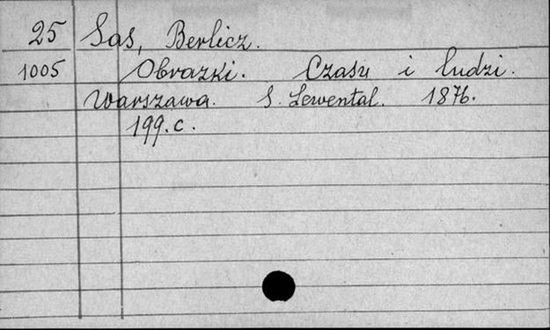 25 Sas, Berlicz.
1005 Obrazki. Czasu i ludzi.
Warszawa. S. Lewental. 1876.
199. c.